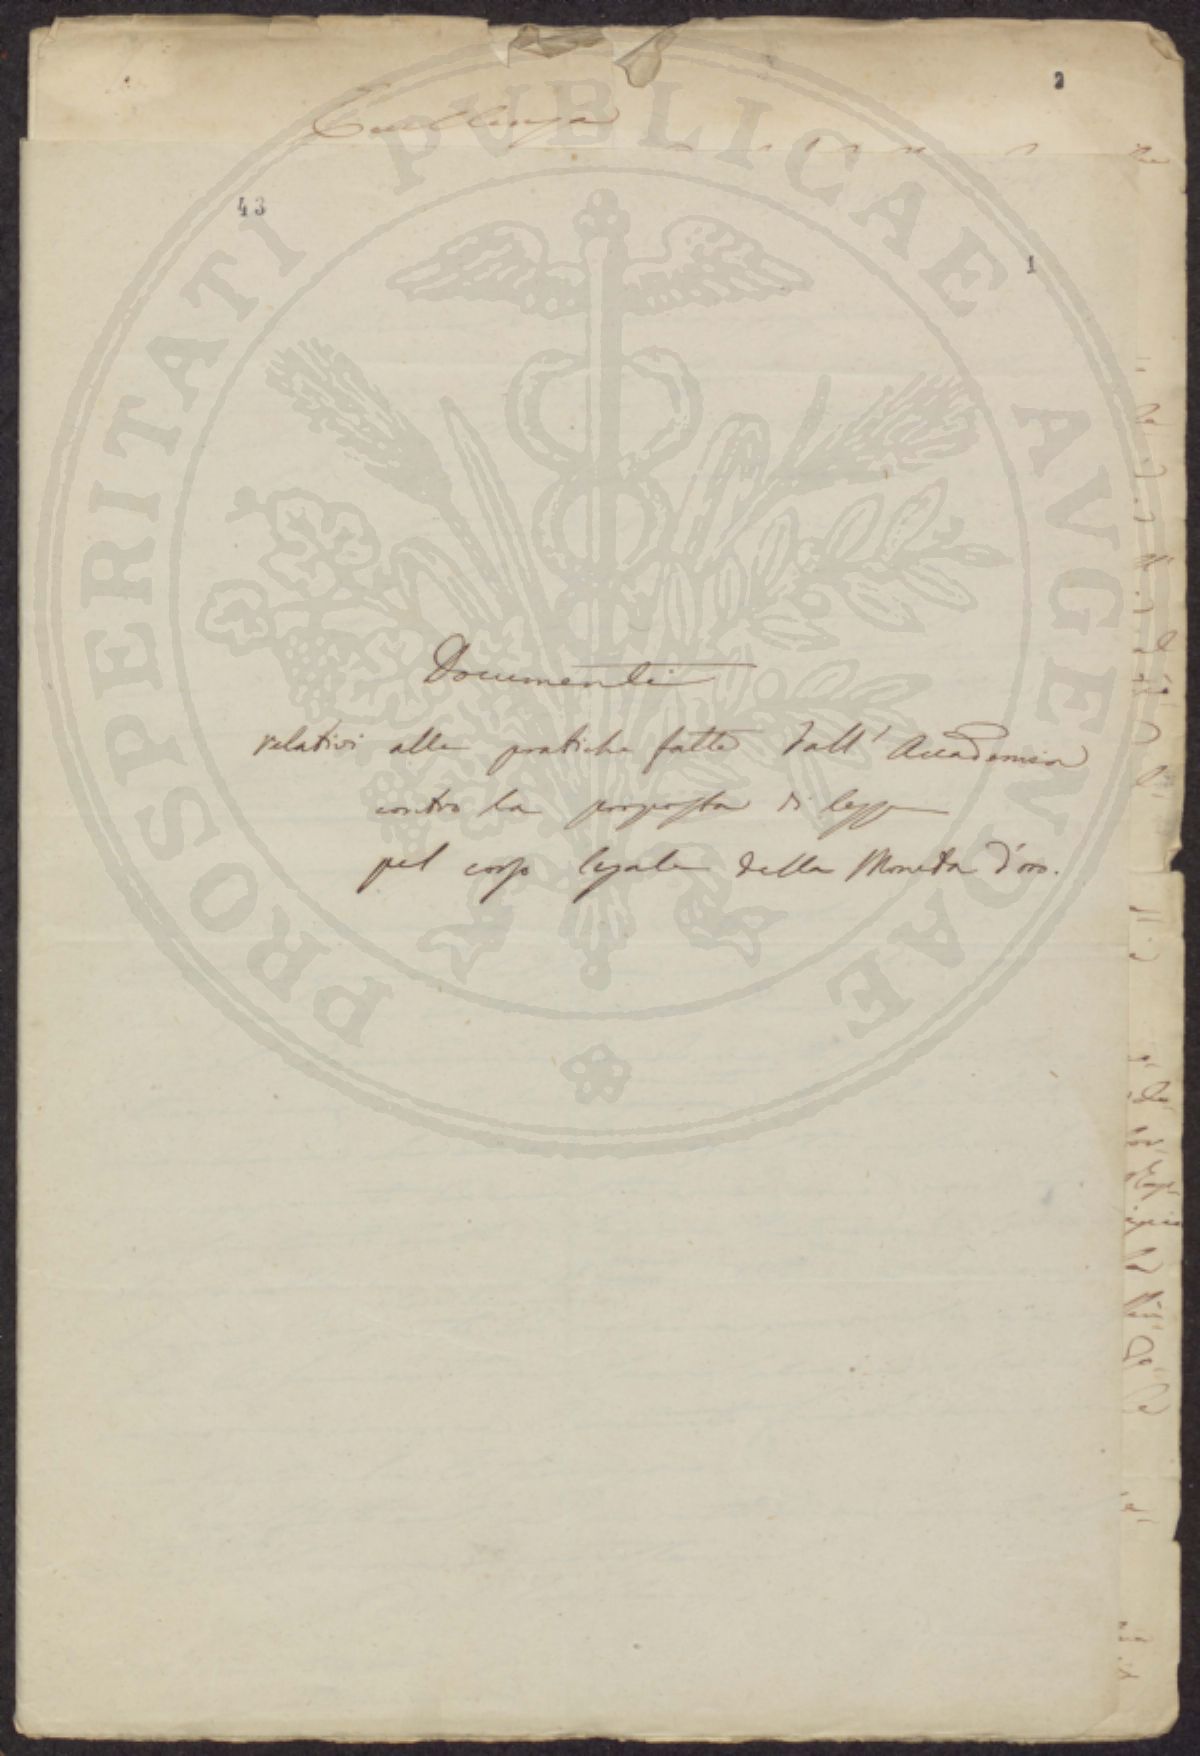 2
Eccellenza
43
1
Documenti
relativi alle pratiche fatte dall' Accademia
contro la proposta di legge
pel corso legale della Moneta d'oro.
PROSPERITATI PUBLICAE AVGENDAE